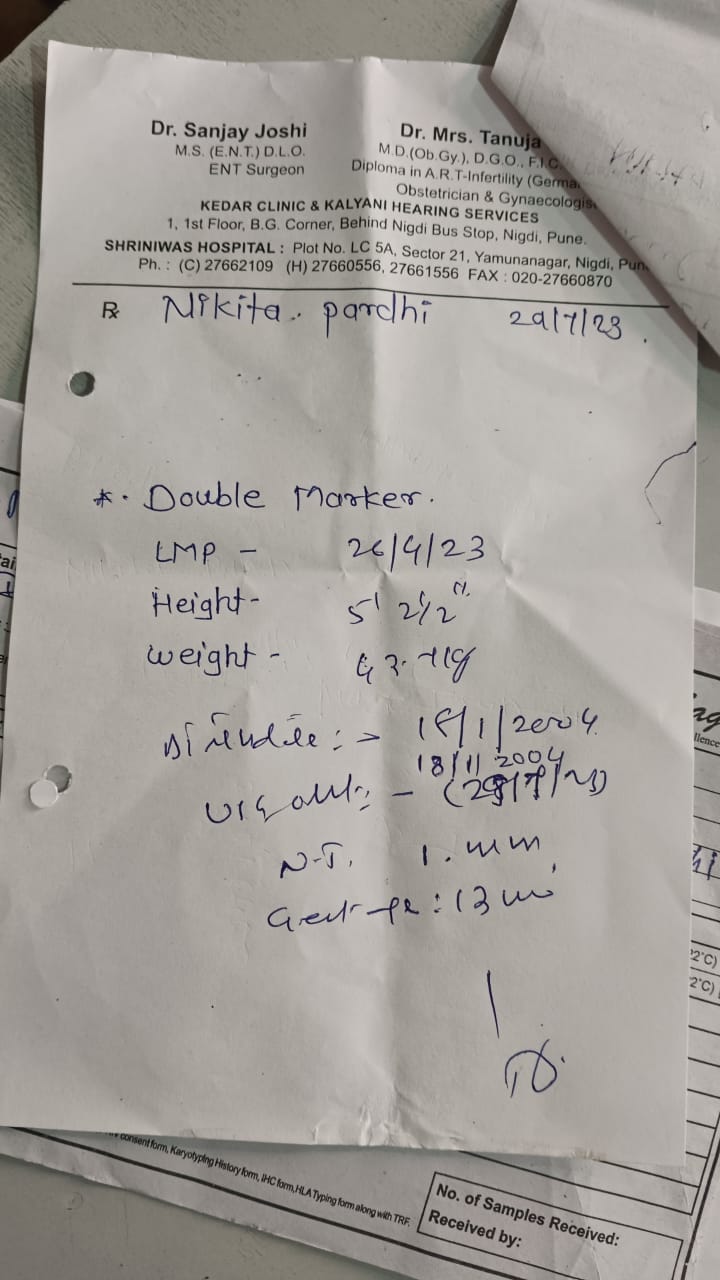 Dr. Sanjay Joshi
M.S. (E.N.T.) D.L.O.
ENT Surgeon
Dr. Mrs. Tanuja
M.D.(Ob.Gy.), D.G.O., F.I.C.
Diploma in A.R.T-Infertility (Germa
Obstetrician & Gynaecologis
KEDAR CLINIC & KALYANI HEARING SERVICES
1, 1st Floor, B.G. Corner, Behind Nigdi Bus Stop, Nigdi, Pune.
SHRINIWAS HOSPITAL : Plot No. LC 5A, Sector 21, Yamunanagar, Nigdi, Pun
Ph. : (C) 27662109 (H) 27660556, 27661556 FAX : 020-27660870
℞ Nikita. pardhi 29/7/23.
*. Double Marker.
LMP - 26/4/23
Height- 5' 2½"
Weight -
18/1/2004
18/1/2004
N.T. 1. mm
: 13
22°C)
2°C)
consent form, Karyotyping History form, IHC form, HLA Typing form along with TRF.
No. of Samples Received:
Received by: